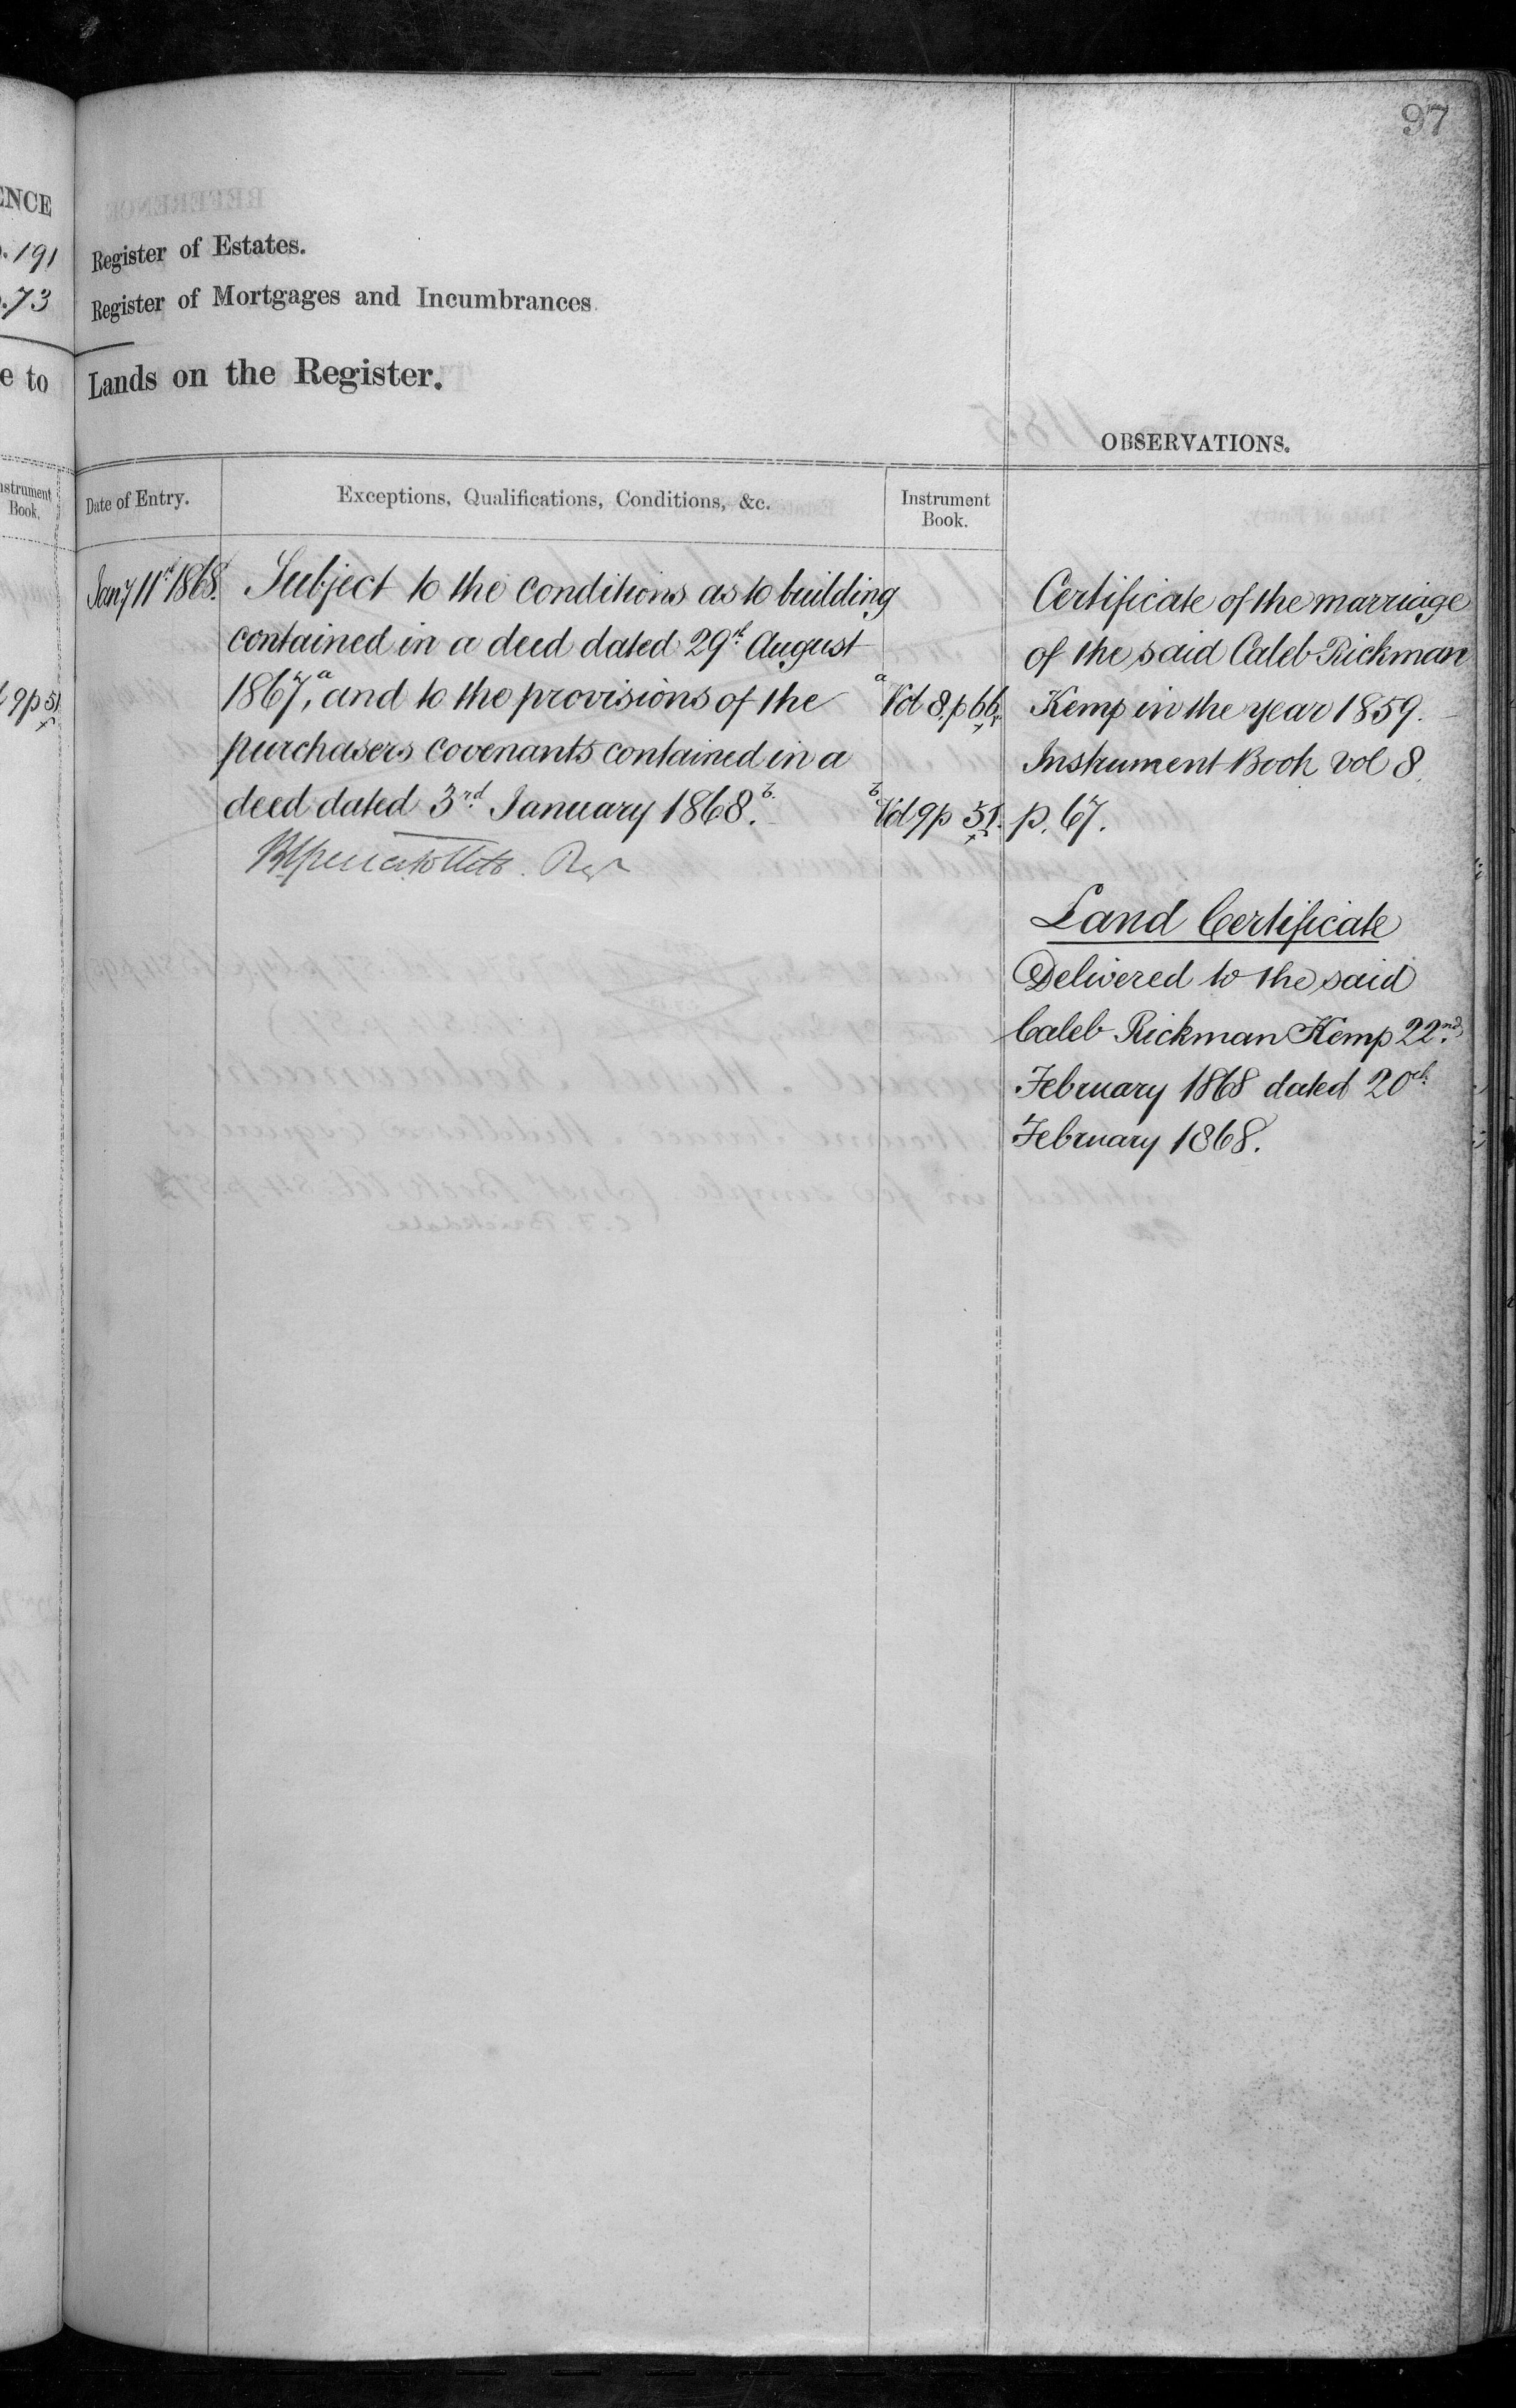 97
ENCE
.191
.73
e to
nstrument
Book.
9p51
Register of Estates.
Register of Mortgages and Incumbrances.
Lands on the Register.
OBSERVATIONS.
Date of Entry.
Exceptions, Qualifications, Conditions, &c.
Instrument
Book.
Jany 11th 1868.
Subject to the conditions as to building
contained in a deed dated 29th August
1867,a and to the provisions of the
purchasers covenants contained in a
deed dated 3rd January 1868.b
Regr
a Vol 8. p 66.
b Vol 9 p 51.
Certificate of the marriage
of the said Caleb Rickman
Kemp in the year 1859.
Instrument Book vol 8.
p. 67.
Land Certificate
Delivered to the said
Caleb Rickman Kemp 22nd
February 1868 dated 20th
February 1868.